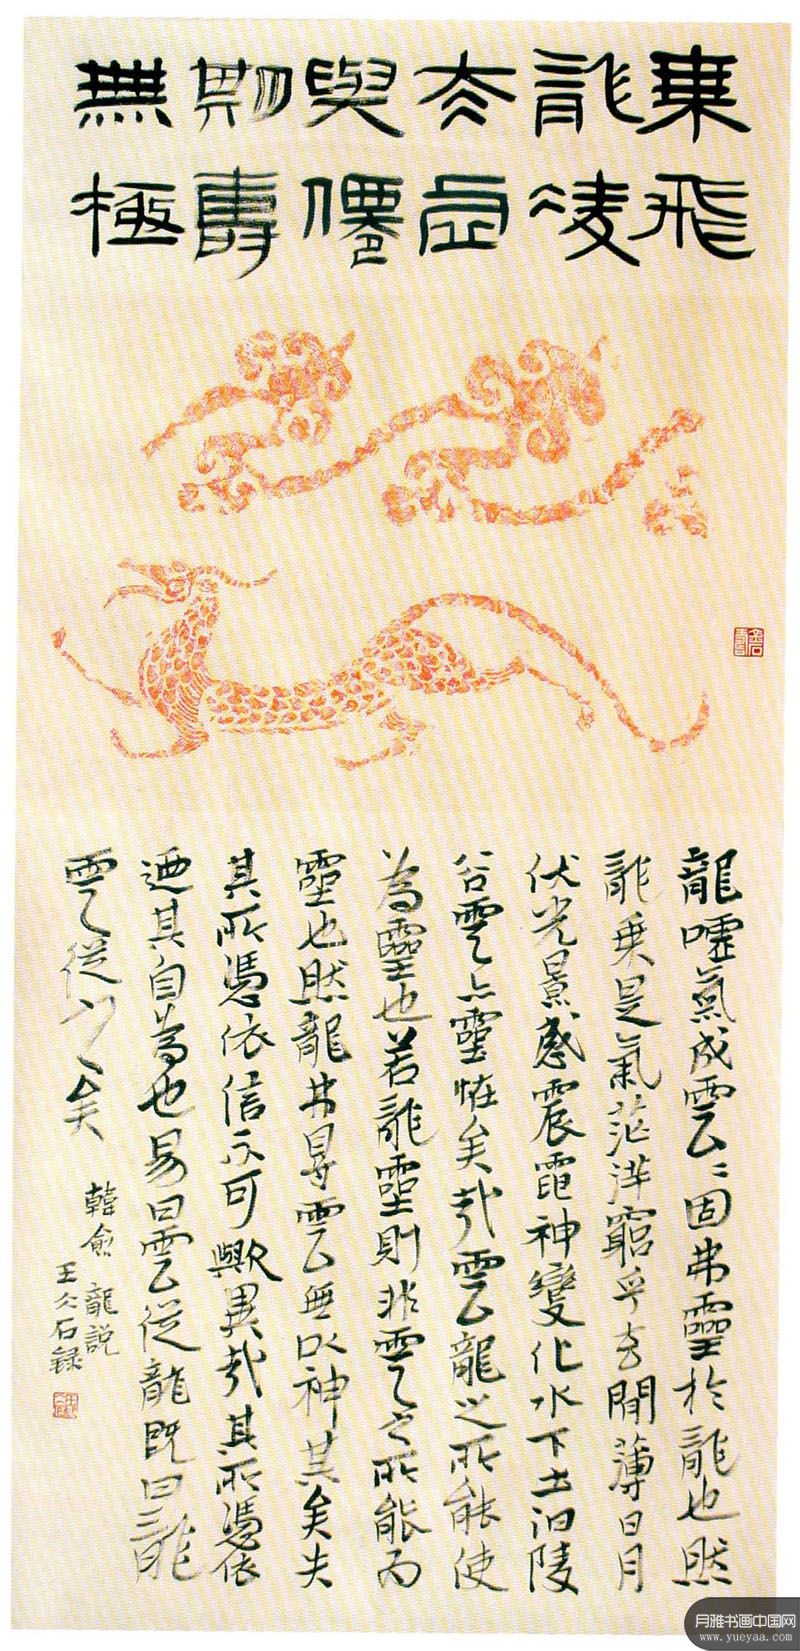 乘飛
龍凌
太虛
與僊
期壽
無極
龍噓氣成雲〻固弗靈於龍也然
龍乘是氣茫洋窮乎玄間薄日月
伏光景感震電神變化水下土汩陵
谷雲亦靈怪矣哉雲龍之所能使
為靈也若龍靈則非雲之所能而
靈也然龍弗得雲無以神其矣失
其所憑依信不可歟異哉其所憑依
迺其自為也易曰雲從龍既曰龍
雲從之矣
韓愈 龍説
王仌石録
月雅书画中国网
www.yueyaa.com